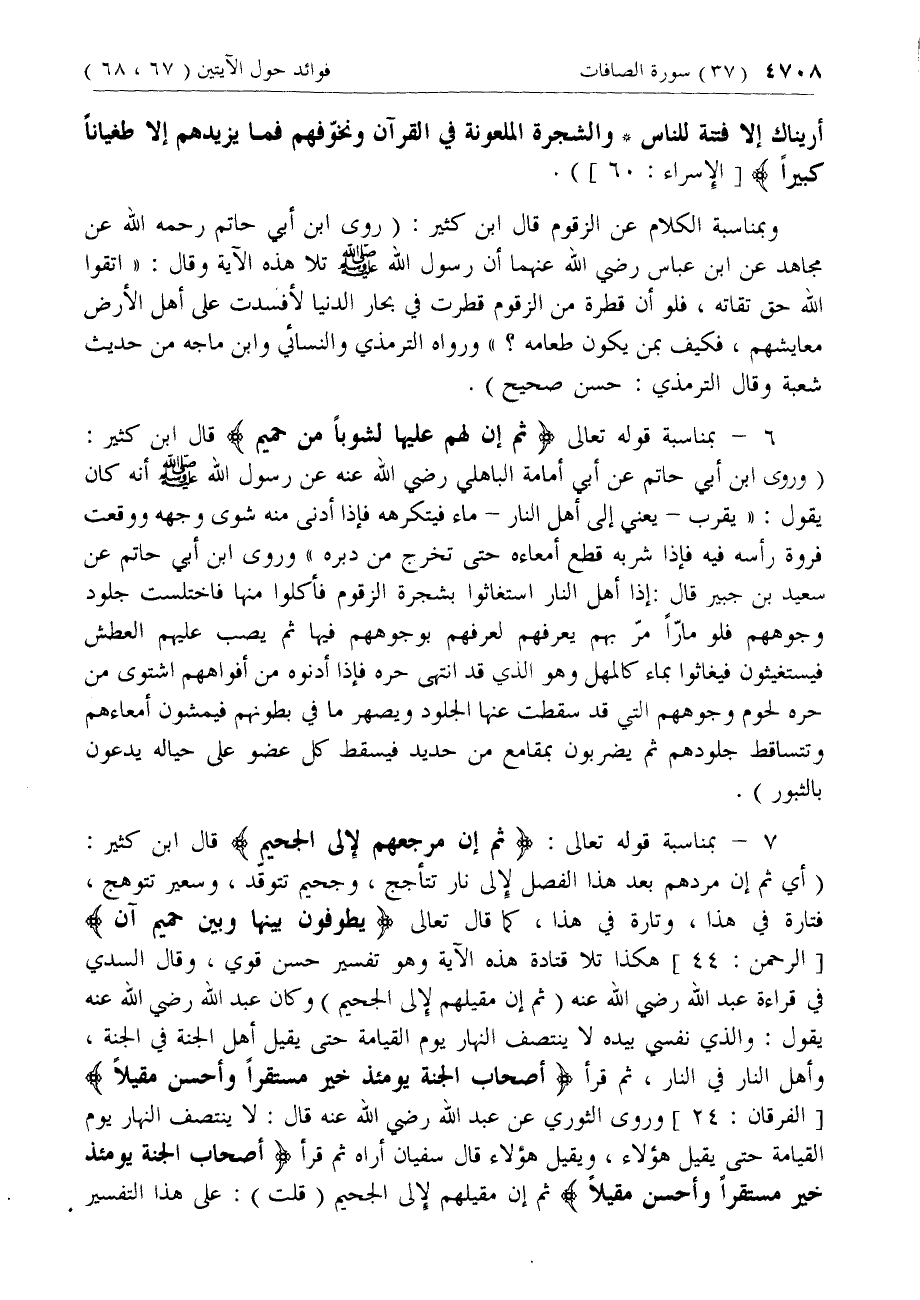 ٤٧٠٨ (٣٧) سورة الصافات فوائد حول الآيتين ( ٦٧ ، ٦٨ )
أريناك إلا فتنة للناس * والشجرة الملعونة في القرآن ونخوّفهم فما يزيدهم إلا طغياناً
كبيراً ﴾ [ الإسراء : ٦٠ ] ) .
وبمناسبة الكلام عن الزقوم قال ابن كثير : ( روى ابن أبي حاتم رحمه الله عن
مجاهد عن ابن عباس رضي الله عنهما أن رسول الله ﷺ تلا هذه الآية وقال : « اتقوا
الله حق تقاته ، فلو أن قطرة من الزقوم قطرت في بحار الدنيا لأفسدت على أهل الأرض
معايشهم ، فكيف بمن يكون طعامه ؟ » ورواه الترمذي والنسائي وابن ماجه من حديث
شعبة وقال الترمذي : حسن صحيح ) .
٦ – بمناسبة قوله تعالى ﴿ ثم إن لهم عليها لشوباً من حميم ﴾ قال ابن كثير :
( وروى ابن أبي حاتم عن أبي أمامة الباهلي رضي الله عنه عن رسول الله ﷺ أنه كان
يقول : « يقرب – يعني إلى أهل النار – ماء فيتكرهه فإذا أدنى منه شوى وجهه ووقعت
فروة رأسه فيه فإذا شربه قطع أمعاءه حتى تخرج من دبره » وروى ابن أبي حاتم عن
سعيد بن جبير قال :إذا أهل النار استغاثوا بشجرة الزقوم فأكلوا منها فاختلست جلود
وجوههم فلو مارّاً مرّ بهم يعرفهم لعرفهم بوجوههم فيها ثم يصب عليهم العطش
فيستغيثون فيغاثوا بماء كالمهل وهو الذي قد انتهى حره فإذا أدنوه من أفواههم اشتوى من
حره لحوم وجوههم التي قد سقطت عنها الجلود ويصهر ما في بطونهم فيمشون أمعاءهم
وتتساقط جلودهم ثم يضربون بمقامع من حديد فيسقط كل عضو على حياله يدعون
بالثبور ) .
٧ – بمناسبة قوله تعالى : ﴿ ثم إن مرجعهم لإلى الجحيم ﴾ قال ابن كثير :
( أي ثم إن مردهم بعد هذا الفصل لإلى نار تتأجج ، وجحيم تتوقّد ، وسعير تتوهج ،
فتارة في هذا ، وتارة في هذا ، كما قال تعالى ﴿ يطوفون بينها وبين حميم آن ﴾
[ الرحمن : ٤٤ ] هكذا تلا قتادة هذه الآية وهو تفسير حسن قوي ، وقال السدي
في قراءة عبد الله رضي الله عنه ( ثم إن مقيلهم لإلى الجحيم ) وكان عبد الله رضي الله عنه
يقول : والذي نفسي بيده لا ينتصف النهار يوم القيامة حتى يقيل أهل الجنة في الجنة ،
وأهل النار في النار ، ثم قرأ ﴿ أصحاب الجنة يومئذ خير مستقراً وأحسن مقيلاً ﴾
[ الفرقان : ٢٤ ] وروى الثوري عن عبد الله رضي الله عنه قال : لا ينتصف النهار يوم
القيامة حتى يقيل هؤلاء ، ويقيل هؤلاء قال سفيان أراه ثم قرأ ﴿ أصحاب الجنة يومئذ
خير مستقراً وأحسن مقيلاً ﴾ ثم إن مقيلهم لإلى الجحيم ( قلت ) : على هذا التفسير